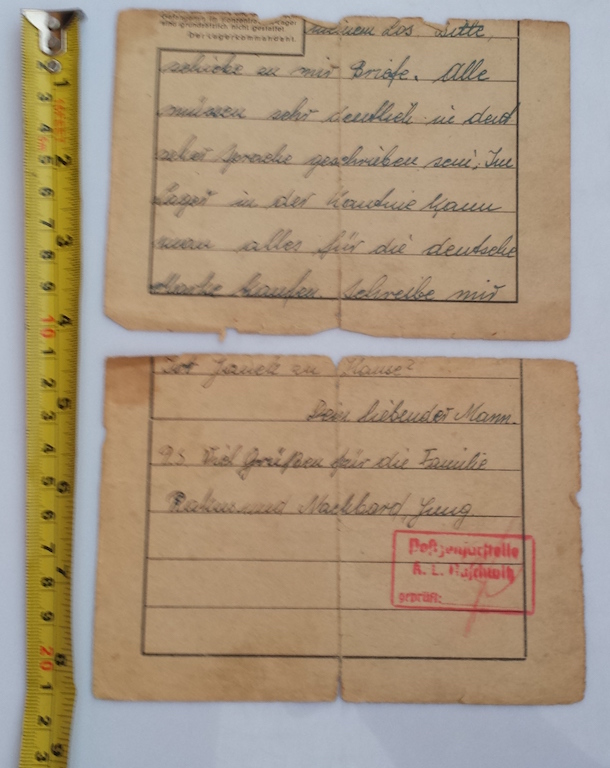 aus grundsätzlich nicht gestattet
Der Lagerkommandant.
meinem Los. Bitte,
schicke an mir Briefe. Alle
müssen sehr deutlich in deut
scher Sprache geschrieben sein. Im
Lager in der Kantine kann
man alles für die deutsche
Marke kaufen. Schreibe mir
Ist Janek zu Hause?
Dein liebender Mann.
P.S. Viel Grüßen für die Familie
und Nachbard, Jung
Postzensurstelle
K. L. Auschwitz
geprüft: